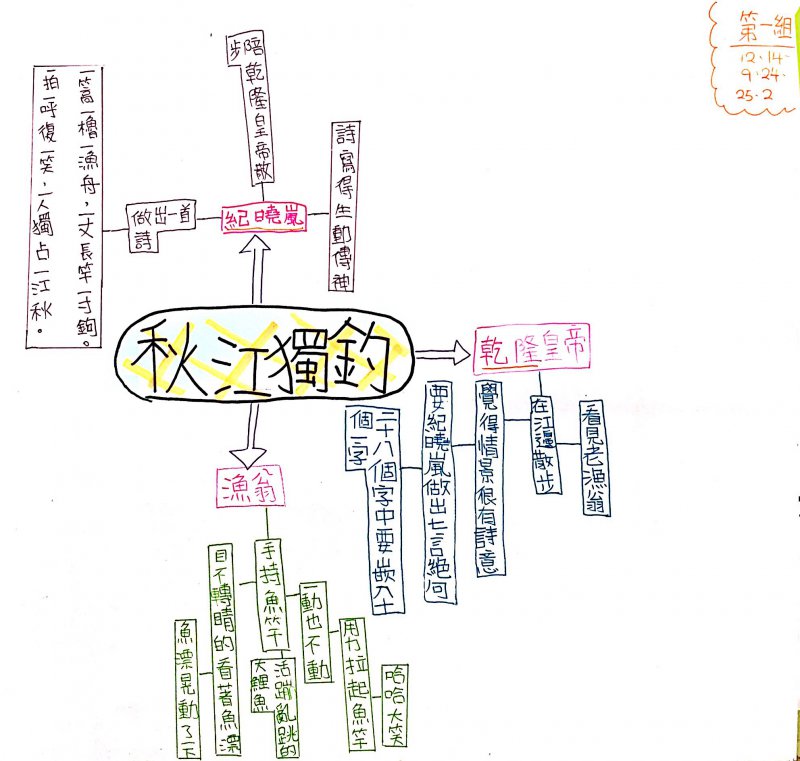 第一組
12.14.
9.24.
25.2
秋江獨釣
紀曉嵐
陪乾隆皇帝散
步
詩寫得生動傳神
做出一首
詩
一篙一櫓一漁舟，一丈長竿一寸鉤。
一拍一呼復一笑，一人獨占一江秋。
乾隆皇帝
在江邊散步
看見老漁翁
覺得情景很有詩意
要紀曉嵐做出七言絕句
二十八個字中要嵌入十
個一字
漁翁
手持魚竿
目不轉睛的看著魚漂
魚漂晃動了一下
活蹦亂跳的
大鯉魚
一動也不動
用力拉起魚竿
哈哈大笑